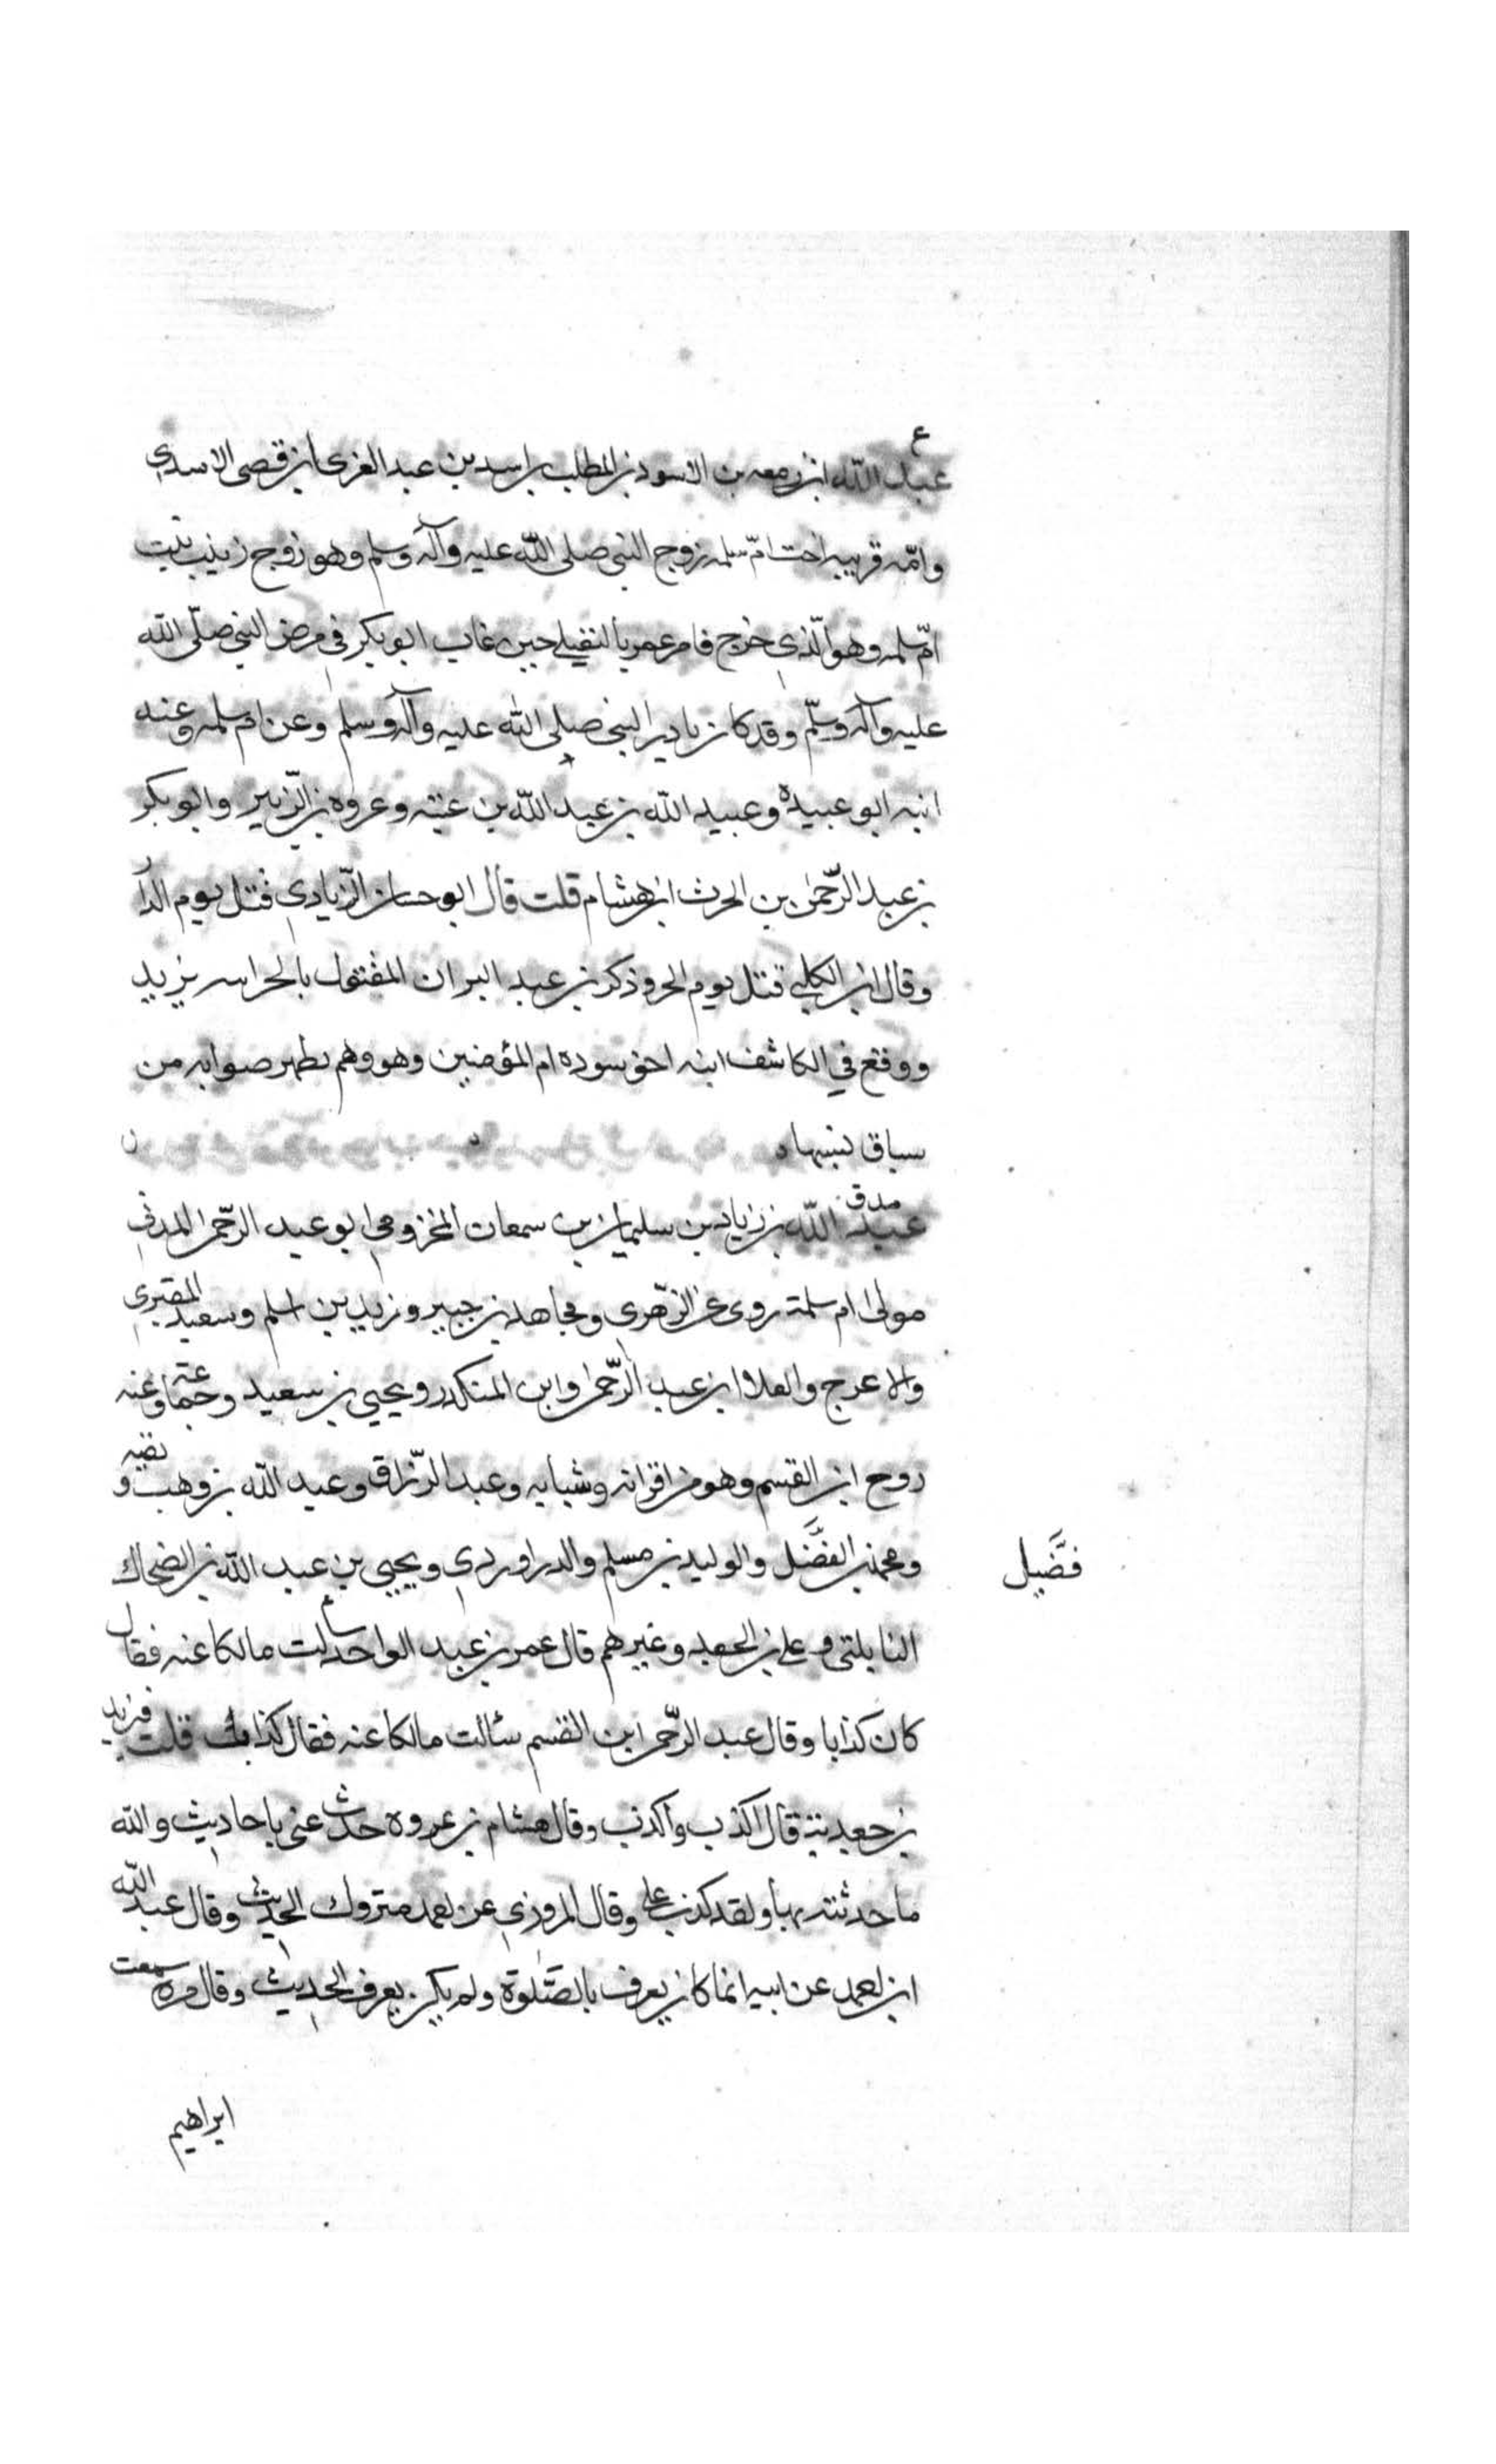 ع
عبد الله ابن زمعه بن الاسود بن المطلب بن اسد بن عبد العزى ابن قصى الاسدي
وامّه قريبه اخت امّ سلمه زوج النبي صلى الله عليه وآله وسلم وهو زوج زينب بنت
امّ سلمه وهو الّذي خرج فامر عمر بالنفيلے حين غاب ابو بكر في مرض النبي صلّى الله
عليه وآله وسلّم وقد كان يادير النبي صلى الله عليه وآله وسلم وعن ام سلمه وعنه
ابنه ابو عبيدة وعبيد الله بن عبد الله بن عتبه وعروه بن الزّبير وابو بكر
بن عبد الرّحمن بن الحرث ابن هشام قلت قال ابو حسان الزّيادي قتل يوم الدار
وقال ابن الكلبي قتل يوم الحر وذكر بن عبد البر ان المقتول بالحر اسه يزيد
ووقع في الكاشف انه اخو سوده ام المؤمنين وهو وهم يظهر صوابه من
سياق نسبها
مدق
عبد الله بن زياد بن سليمان بن سمعان المخزومي ابو عبد الرّحمن المدني
مولى ام سلمة روى عن الزّهرى ومجاهد بن جبير وزيد بن اسلم وسعيد المقبرى
والاعرج والعلا ابن عبد الرّحمن وابن المنكدر ويحيى بن سعيد وجماعة وعنه
روح ابن القسم وهو من اقرانه وشبابه وعبد الرّزاق وعبد الله بن وهب وبقيه
ومحمد بن الفضَّل والوليد بن مسلم والدراوردي ويحيى بن عبد الله بن الضحاك
فضَّيل
البابلتى وعلى بن الجعد وغيرهم قال عمر بن عبد الواحد سألت مالكا عنه فقال
كان كذابا وقال عبد الرّحمن ابن القسم سئالت مالكا عنه فقال كذاب قلت فيزيد
بن جعدبة قال اكذب واكذب وقال هشام بن عروه حدث عني باحاديث والله
ما حدثته بها ولقد كذب على وقال المروذي عن احمد متروك الحديث وقال عبد الله
ابن احمد عن ابيه انما كان يعرف بالصَّلوة ولم يكن يعرف الحديث وقال مره سمعت
ابراهيم